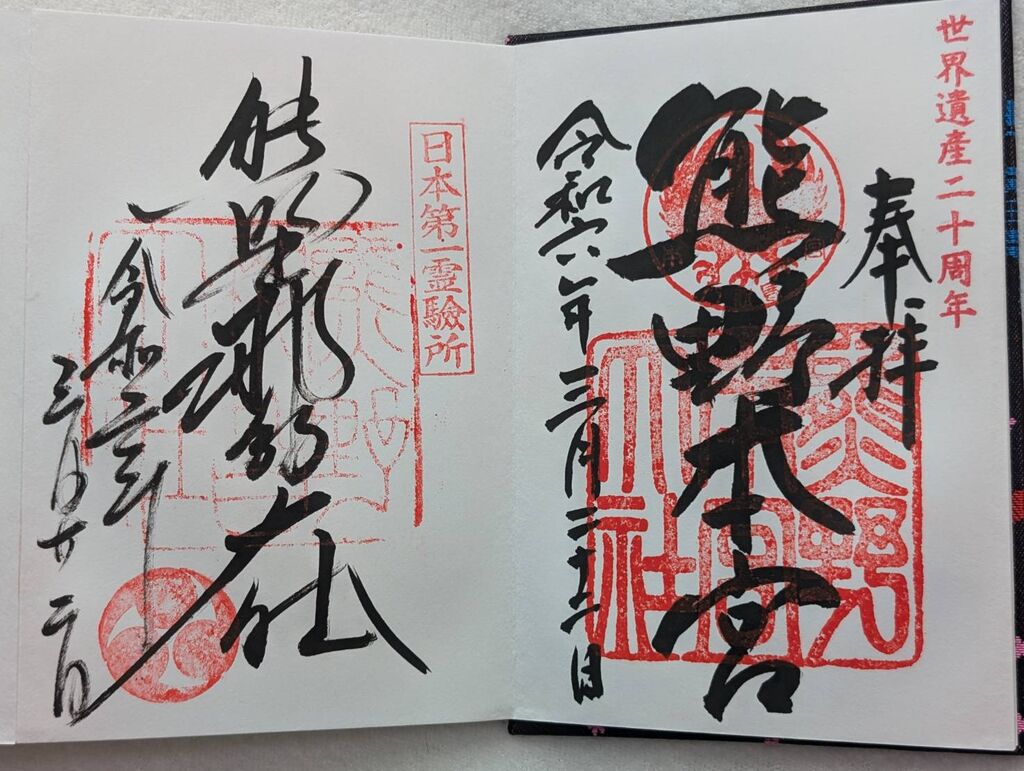 世界遺産二十周年
奉拝
熊野本宮
令和六年三月二十二日
熊野本宮大社
日本第一霊驗所
大社
令和六年
三月廿二日